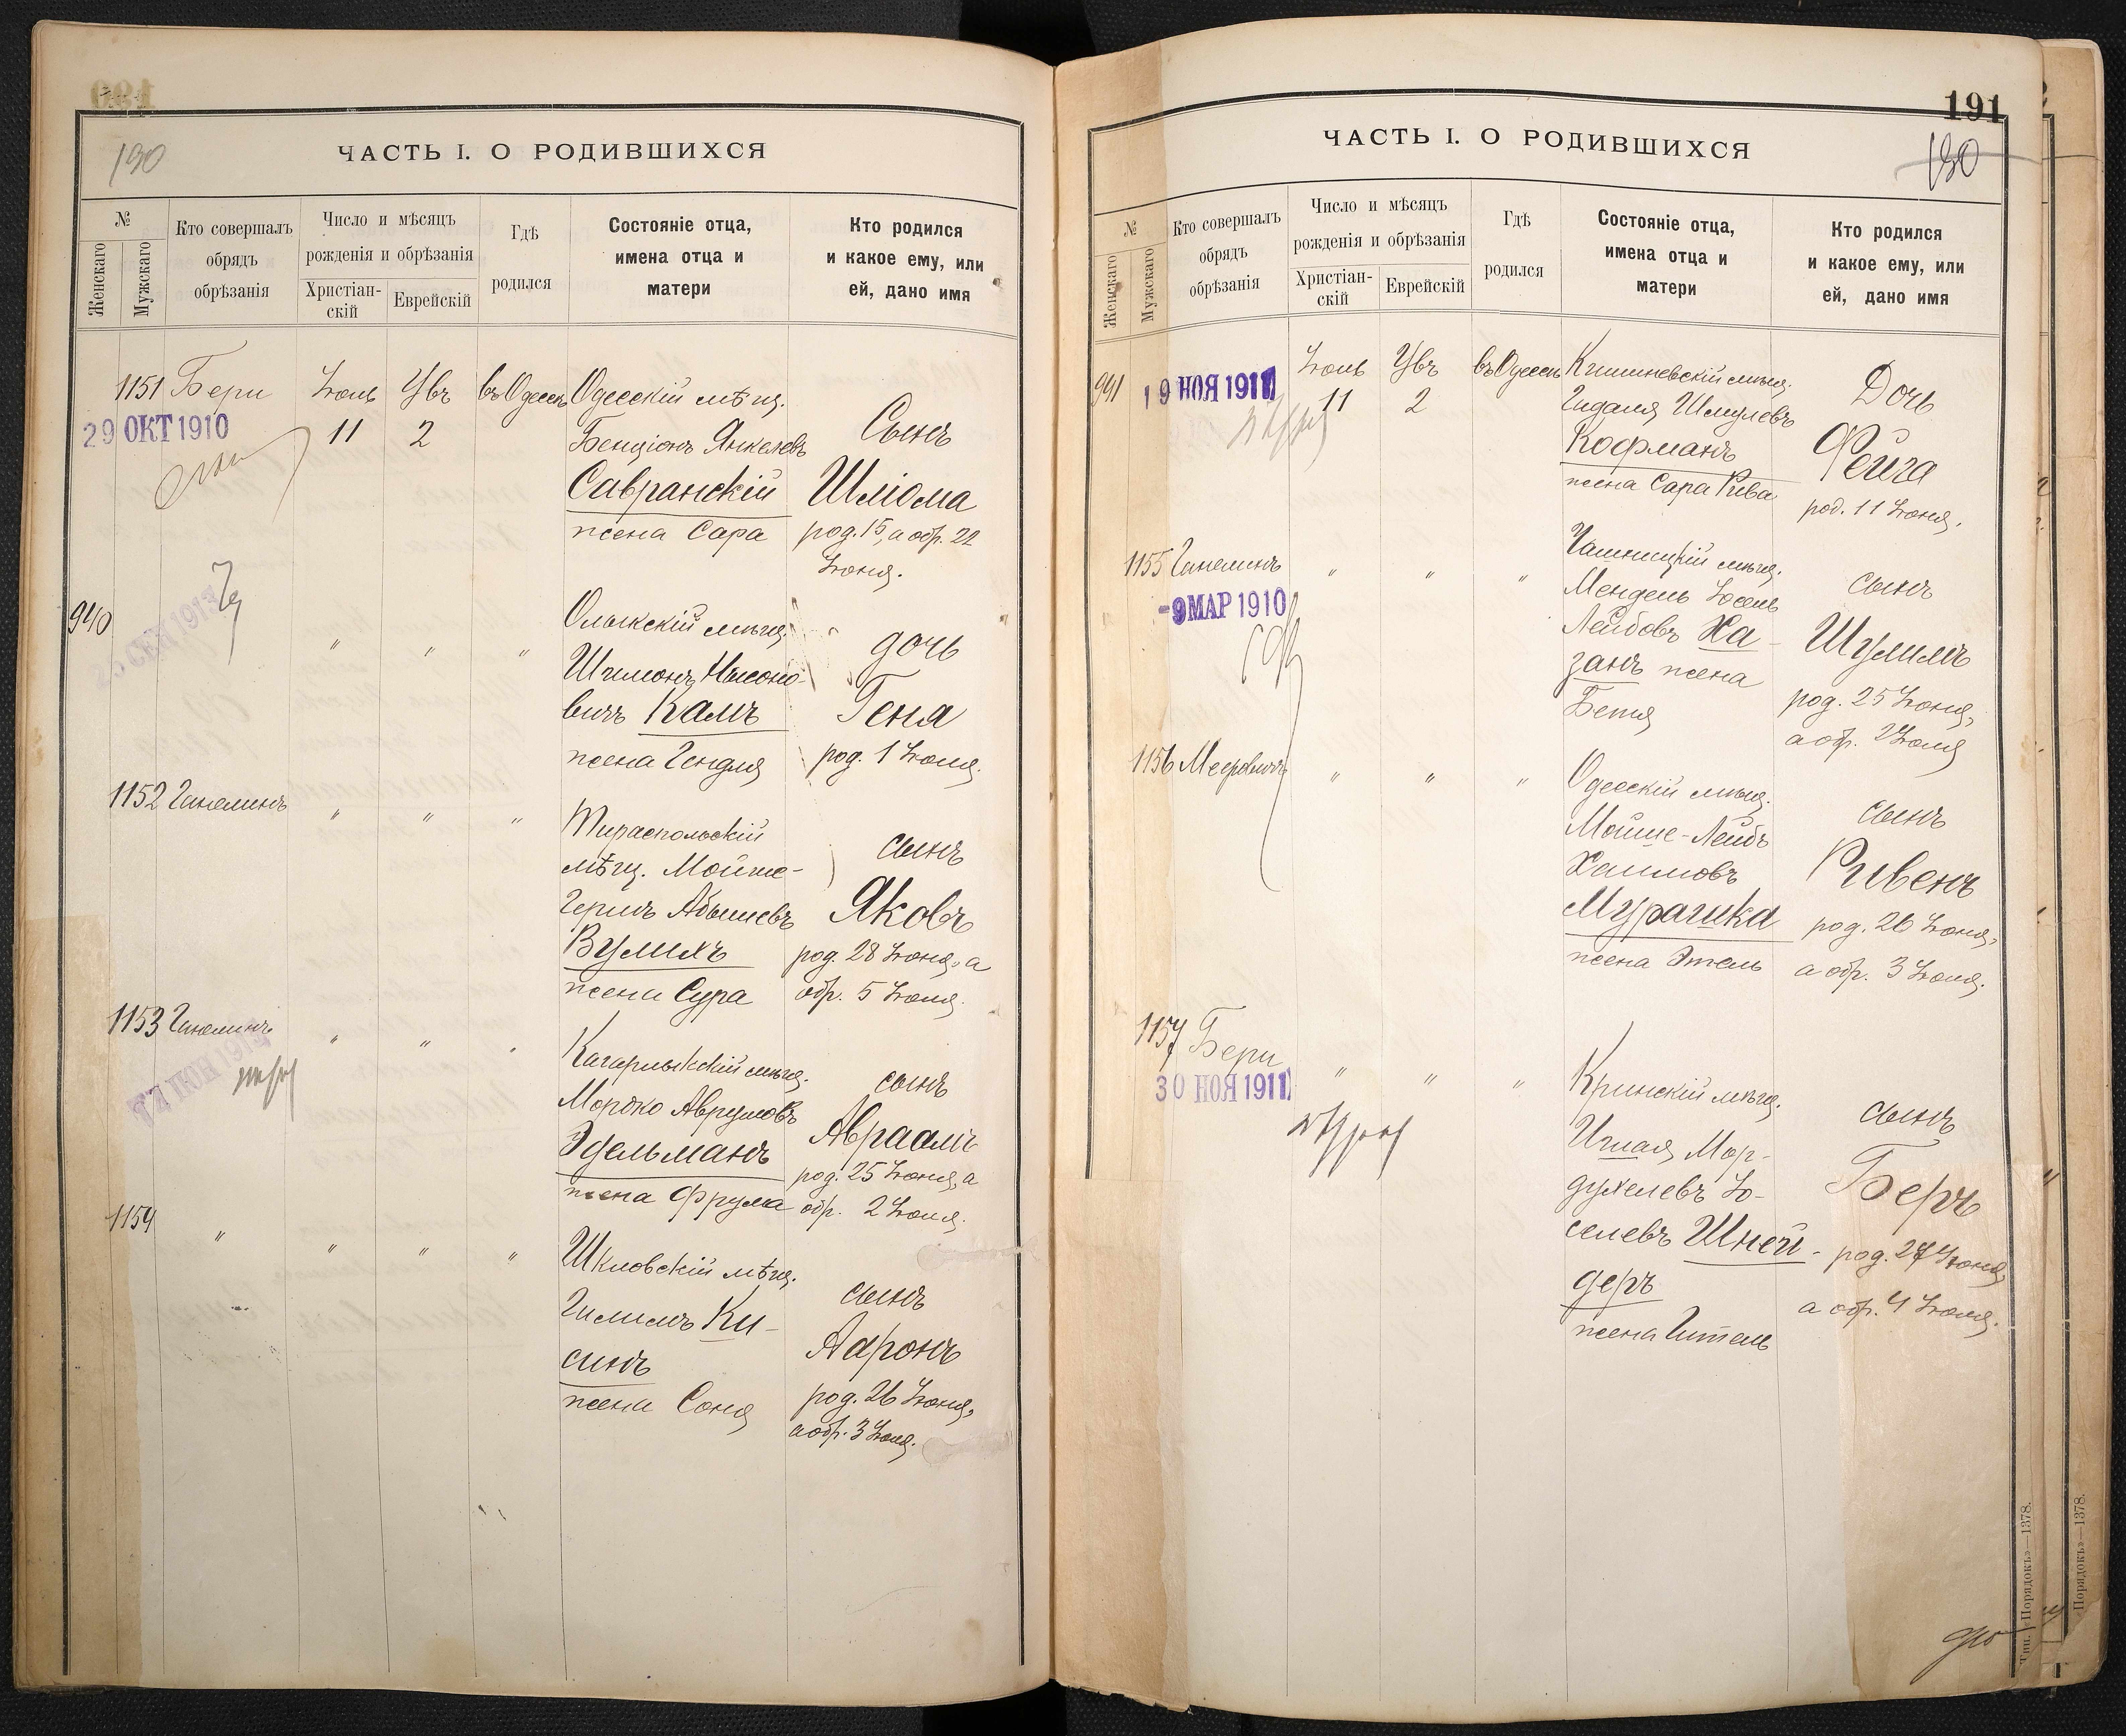 190
ЧАСТЬ I. О РОДИВШИХСЯ
№
Женскаго
Мужскаго
Кто совершалъ
обрядъ
обрѣзанія
Число и мѣсяцъ
рожденія и обрѣзанія
Христіан-
скій
Еврейскій
Гдѣ
родился
Состояніе отца,
имена отца и
матери
Кто родился
и какое ему, или
ей, дано имя
1151 Бери Іюль Ў въ Одессѣ Одесскій мѣщ.
29 ОКТ 1910
11 2
Бенціонъ Янкелевъ
Савранскій
жена Сара
Сынъ
Шліома
род. 15, а обр. 22
Іюня.
940 " " "
Олыкскій мѣщ.
Шимонъ Нысоно-
вичъ Камъ
жена Гендля
дочь
Геня
род. 1 Іюля.
1152 Ганелинъ " " "
Тираспольскій
мѣщ. Мойше-
Гершъ Абышевъ
Вулихъ
жена Сура
сынъ
Яковъ
род. 28 Іюня, а
обр. 5 Іюля.
1153 Ганелинъ " " "
Кагарлыкскій мѣщ.
Мордко Аврумовъ
Эдельманъ
жена Фрума
сынъ
Авраамъ
род. 25 Іюня, а
обр. 2 Іюля.
1154 " " " "
Шкловскій мѣщ.
Гилимъ Ки-
синъ
жена Соня
сынъ
Ааронъ
род. 26 Іюня,
а обр. 3 Іюля.
191
190
ЧАСТЬ I. О РОДИВШИХСЯ
№
Женскаго
Мужскаго
Кто совершалъ
обрядъ
обрѣзанія
Число и мѣсяцъ
рожденія и обрѣзанія
Христіан-
скій
Еврейскій
Гдѣ
родился
Состояніе отца,
имена отца и
матери
Кто родился
и какое ему, или
ей, дано имя
941 19 НОЯ 1911
Іюль въ Одессѣ
11 2
Кишиневскій мѣщ.
Гидаля Шмулевъ
Кофманъ
жена Сара Рива
Дочь
Фейга
род. 11 Іюня.
1155 Ганелинъ " " "
-9 МАР 1910
Чашницкій мѣщ.
Мендель Іосель
Лейбовъ Ха-
занъ жена
Бетя
сынъ
Шулимъ
род. 25 Іюня,
а обр. 2 Іюля
1156 Мееровичъ " " "
Одесскій мѣщ.
Мойше-Лейбъ
Хаимовъ
Мурашка
жена Этель
сынъ
Рувенъ
род. 26 Іюня,
а обр. 3 Іюля.
1157 Бери " " "
30 НОЯ 1911
Кринскій мѣщ.
Ишая Мор-
духелевъ Іо-
селевъ Шней-
деръ
жена Гитель
сынъ
Беръ
род. 27 Іюня,
а обр. 4 Іюля.
Тип. «Порядокъ»—1378.
«Порядокъ»—1378.